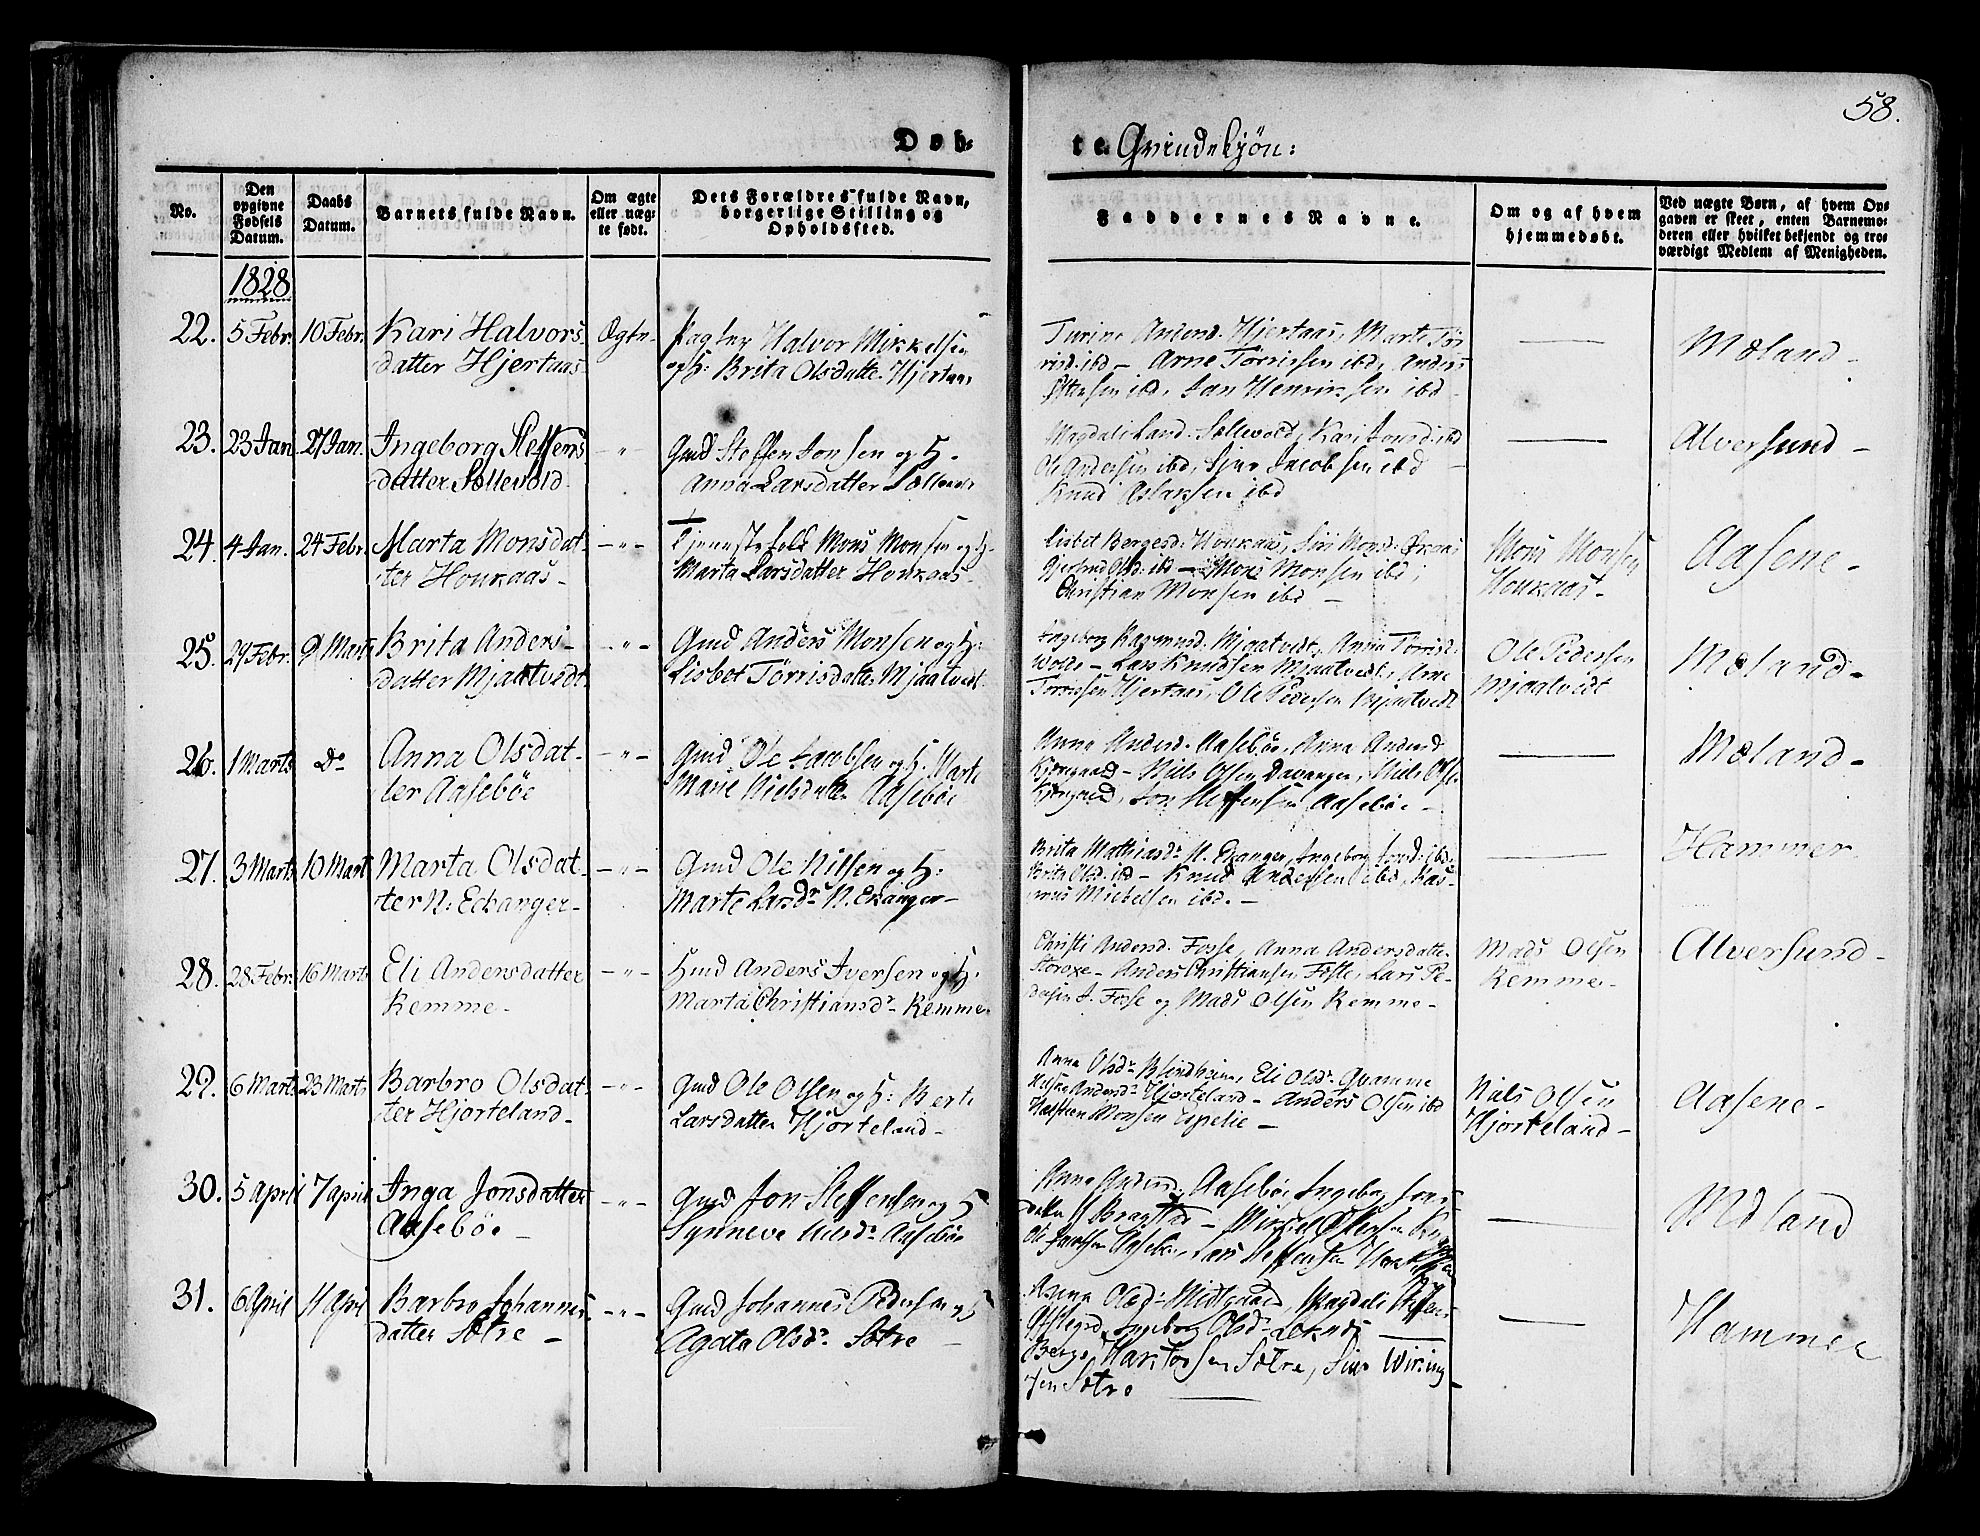 58.
Døb-
te Qvindekjøn:
No.
Den opgivne Fødsels Datum.
Daabs Datum.
Barnets fulde Navn.
Om ægte eller uægte født.
Dets Forældres fulde Navn, borgerlige Stilling og Opholdssted.
Faddernes Navne.
Om og af hvem hjemmedøbt.
Ved uægte Børn, af hvem Opgaven er skeet, enten Barnemoderen eller hvilket bekjendt og troværdigt Medlem af Menigheden.
1828
22. 5 Febr. 10 Febr. Kari Halvors
datter Hjertaas
Ægte
Halvor Mikkelsen
og H: Brita Olsdatte Hjertaas
Anders. Hjertaas, Marte Tør
risd. ibd – Arne Tørrissen ibd, Anders
ibd, Jan Henriksen ibd
Mæland –
23. 23 Jan. 27 Jan. Ingeborg Steffens
datter Sællevold
– " –
Gmd Steffen Jonsen og H.
Anna Larsdatter Sællevold
Sællevold, Kari Jonsd. ibd
Ole Andersen ibd, Sjur Jacobsen ibd
Knud Aslaksen ibd
Alversund –
24. 4 Jan. 24 Febr. Marta Monsdat
ter Houkaas –
– " –
Mons Monsen og H.
Marta Larsdatter Houkaas –
Lisbet Bergesd: Houkaas, Siri Monsd:
ibd – Mons Monsen ibd,
Christian Monsen ibd –
Mons Monsen
Houkaas –
Aasene –
25. 29 Febr. 9 Marts Brita Anders
datter Mjaatvedt
– " –
Gmd Anders Monsen og H:
Lisbet Tørrisdatter Mjaatvedt
Ingeborg Rasmusd. Mjaatvedt, Anna Tørrisd.
– Lars Knudsen Mjaatvedt, Arne
Tørrissen Hjertaas, Ole Pedersen Mjaatvedt
Ole Pedersen
Mjaatvedt
Mæland –
26. 1 Marts Do Anna Olsdat
ter Aasebøe
– " –
Gmd Ole Jacobsen og H. Marte
Marie Nielsdatter Aasebøe
Anna Andersd. Aasebøe, Anna Andersd
– Niels Olsen Davanger, Niels Olse
Jon Steffensen Aasebøe –
Mæland –
27. 3 Marts 10 Marts Marta Olsdat
ter N: Eckanger –
– " –
Gmd Ole Nilsen og H:
Marte Larsdr N. Ekanger –
Brita Mathiasdr N. Ekanger, Ingeborg Jonsd: ibd.
Brita Olsd. ibd – Knud Andersen ibd, Ras
mus Mickelsen ibd. –
Hammer.
28. 28 Febr. 16 Marts Eli Andersdatter
Remme –
– " –
Hmd Anders Iversen og H.
Marta Christiansdr Remme
Christi Andersd. Fosse, Anna Andersdatter
– Anders Christiansen Fosse, Lars Pe
dersen Fosse og Mads Olsen Remme –
Mads Olsen
Remme –
Alversund –
29. 6 Marts 23 Marts Barbro Olsdat
ter Hjorteland –
– " –
Gmd Ole Olsen og H: Berte
Larsdatter Hjorteland –
Anna Olsdr Blindheim, Eli Olsdr Qvamme
Andersdr Hjorteland – Anders Olsen ibd
Monsen Espelie –
Niels Olsen
Hjorteland –
Aasene –
30. 5 April 7 April Inga Jonsdatter
Aasebøe –
– " –
Gmd Jon Steffensen og H
Synneve Nilsdr Aasebøe
Anna Andersd, Aasebøe, Ingeborg Jons
datter Bragstad –
Ole Jacobsen Aasebøe, Lars Steffensen
Mæland
31. 6 April 11 April Barbro Johannes
datter Sætre –
– " –
Gmd Johannes Pedersen og H
Agata Olsdr Sætre –
Anna Olsdr Midtgaard, Magdeli Steffens
Ingeborg Olsdr Leknes –
Berge, Hans Torsen Sætre, Siur Wiking
sen Sætre
Hammer